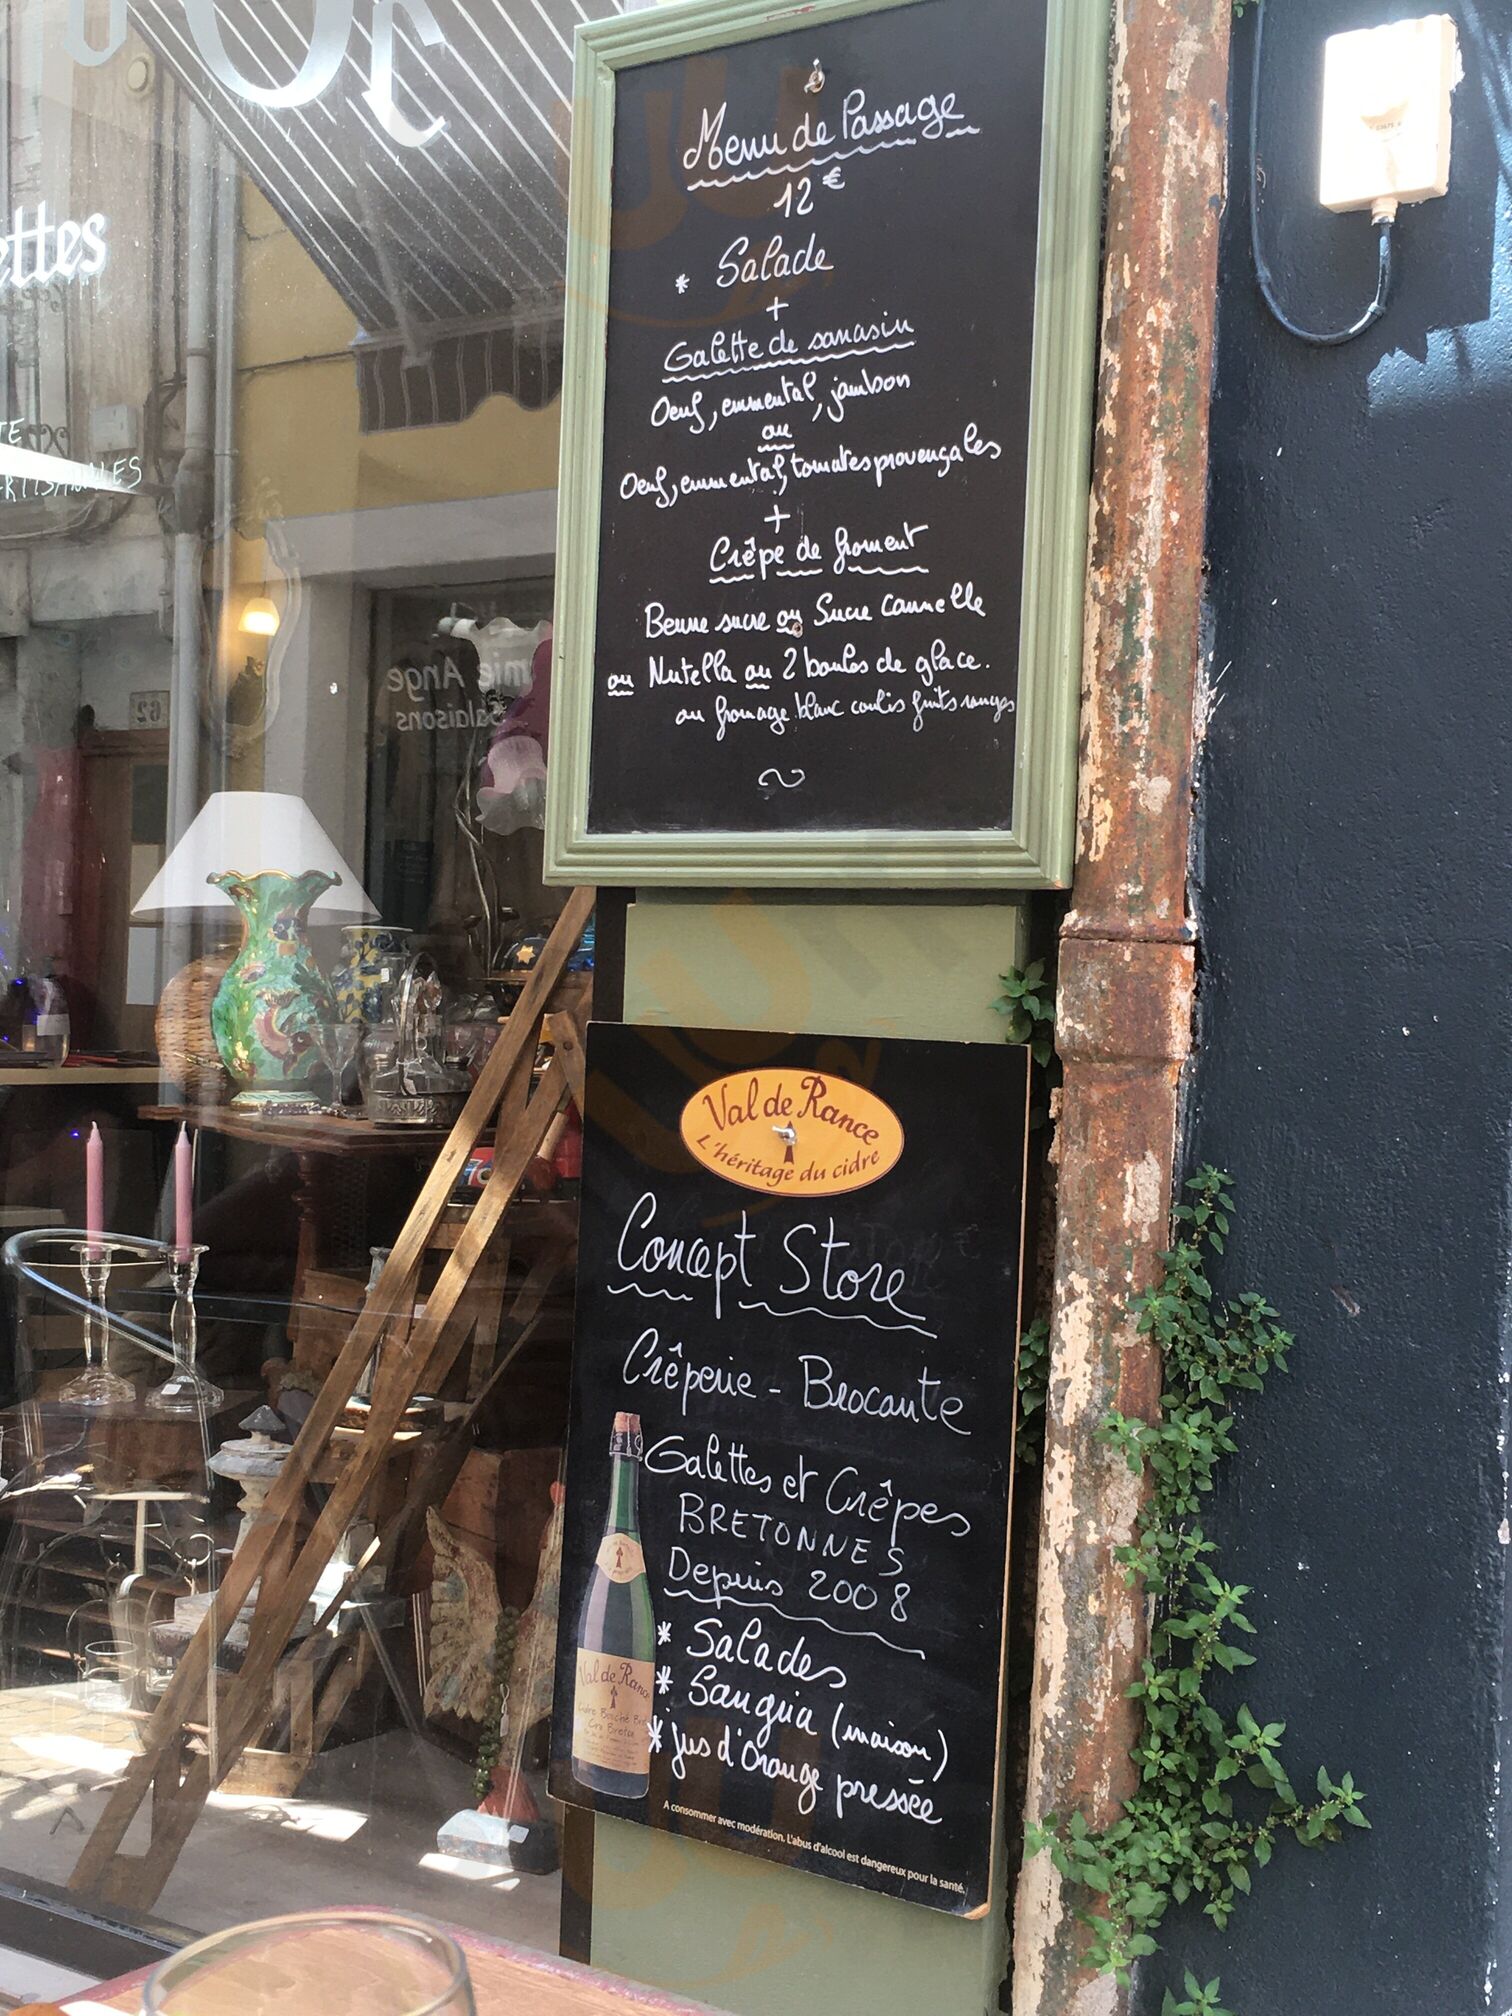 ettes
Menu de Passage
12€
* Salade
+
Galette de sarrasin
Oeuf, emmental, jambon
ou
Oeuf, emmental, tomates provençales
+
Crêpe de froment
Beurre sucre ou Sucre cannelle
ou Nutella ou 2 boules de glace.
ou fromage blanc coulis fruits rouges
mie Ange
Salaisons
62
Val de Rance
L'héritage du cidre
Concept Store
Crêperie - Brocante
Galettes et Crêpes
BRETONNES
Depuis 2008
* Salades
* Sangria (maison)
* jus d'Orange pressée
Val de Rance
Cidre Bouché
Cru Breton
A consommer avec modération. L'abus d'alcool est dangereux pour la santé.